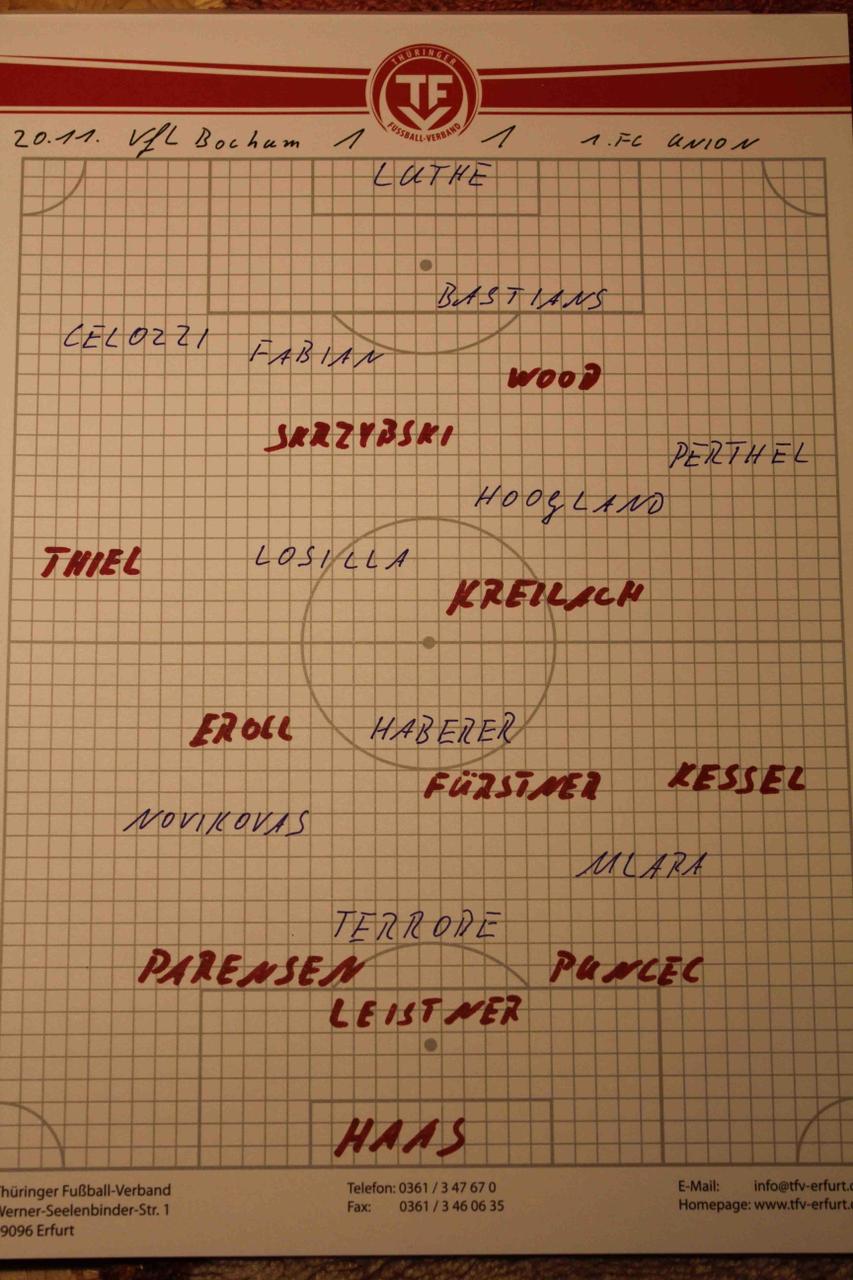 THÜRINGER
TF
FUSSBALL-VERBAND
20.11. VfL Bochum 1 1 1.FC UNION
LUTHE
BASTIANS
CELOZZI
FABIAN
WOOD
SKRZYBSKI
PERTHEL
HOOGLAND
THIEL
LOSILLA
KREILACH
EROLL
HABERER
FÜRSTNER
KESSEL
NOVIKOVAS
MLAPA
TERRODE
PARENSEN
PUNCEC
LEISTNER
HAAS
Thüringer Fußball-Verband Telefon: 0361 / 3 47 67 0 E-Mail: info@tfv-erfurt.
Werner-Seelenbinder-Str. 1 Fax: 0361 / 3 46 06 35 Homepage: www.tfv-erfurt.
9096 Erfurt